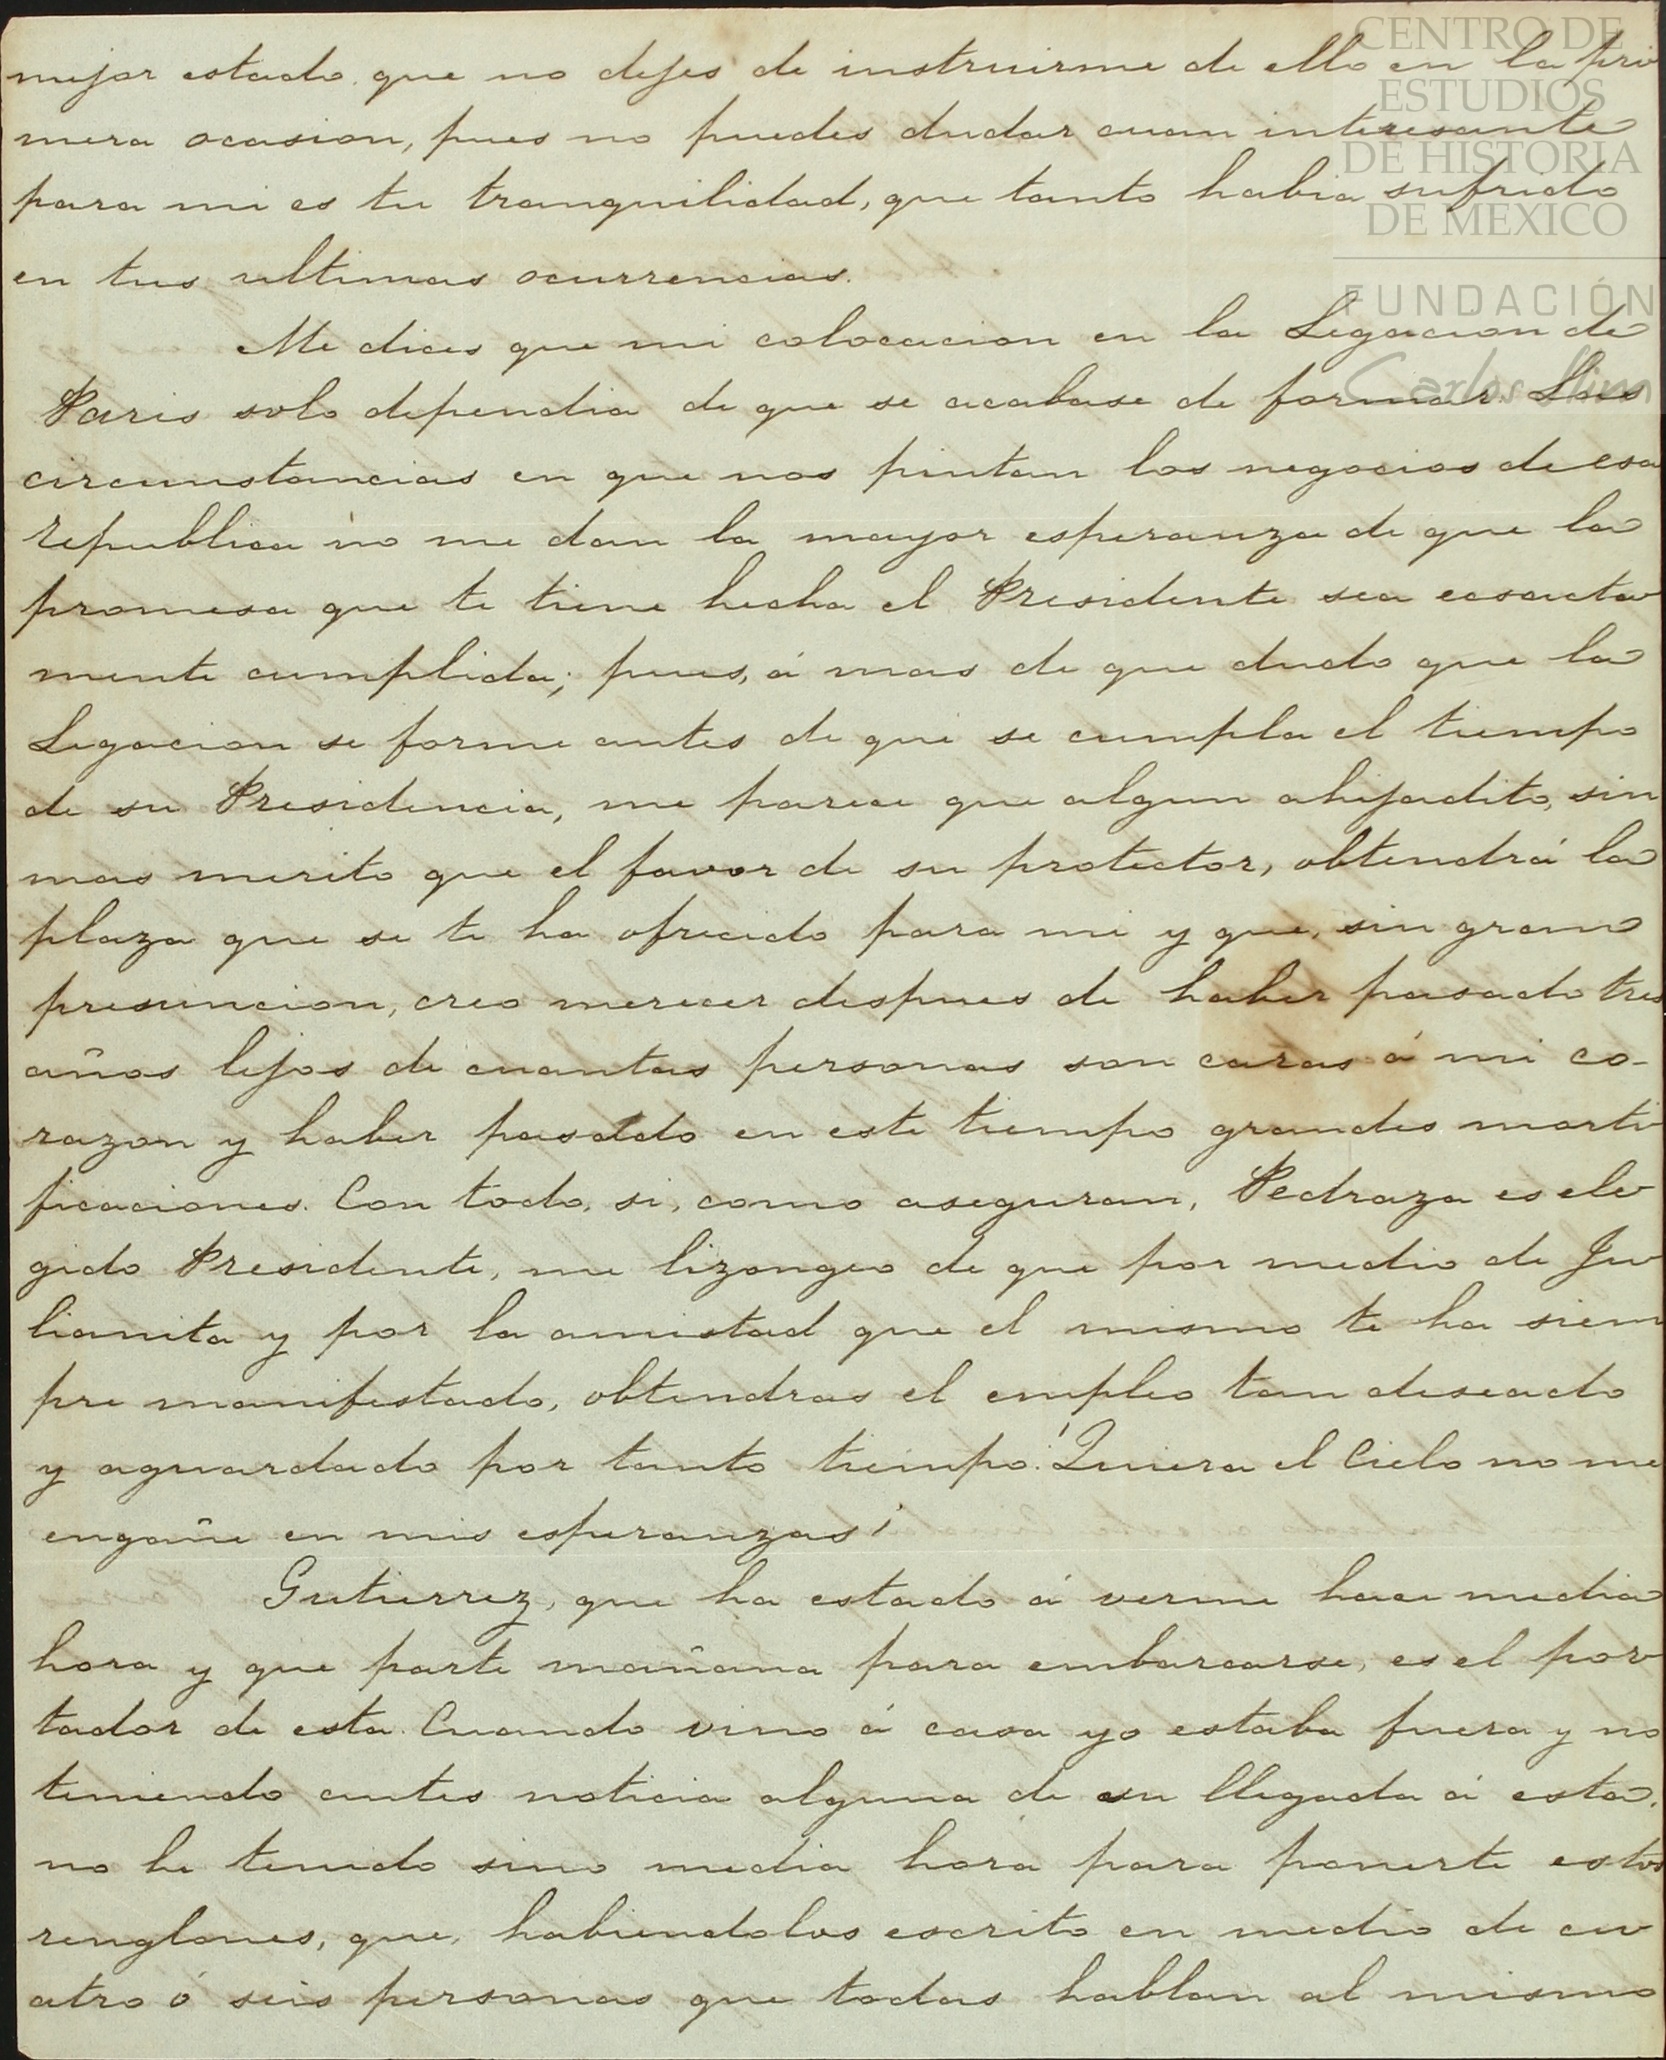 CENTRO DE
ESTUDIOS
DE HISTORIA
DE MEXICO
FUNDACIÓN
Carlos Slim
mejor estado que no dejes de instruirme de ello en la pri
mera ocasion, pues no puedes dudar cuan interesante
para mi es tu tranquilidad, que tanto habia sufrido
en tus ultimas ocurrencias.
Me dices que mi colocacion en la Legacion de
Paris solo dependia de que se acabase de formar. Las
circunstancias en que nos pintan los negocios de esa
republica no me dan la mayor esperanza de que la
promesa que te tiene hecha el Presidente sea ecsacta
mente cumplida; pues, á mas de que dudo que la
Legacion se forme antes de que se cumpla el tiempo
de su Presidencia, me parece que algun ahijadito, sin
mas merito que el favor de su protector, obtendrá la
plaza que se te ha ofrecido para mi y que, sin gran
presuncion, creo merecer despues de haber pasado tres
años lejos de cuantas personas son caras á mi co-
razon y haber pasado en este tiempo grandes morti
ficaciones. Con todo, si, como aseguran, Pedraza es ele
gido Presidente, me lizongeo de que por medio de Ju
lianita y por la amistad que el mismo te ha siem
pre manifestado, obtendras el empleo tan deseado
y aguardado por tanto tiempo. ¡Quiera el Cielo no me
engañe en mis esperanzas!
Gutierrez, que ha estado á verme hace media
hora y que parte mañana para embarcarse, es el por
tador de esta. Cuando vino á casa yo estaba fuera y no
teniendo antes noticia alguna de su llegada á esta,
no he tenido sino media hora para ponerte estos
renglones, que, habiendolos escrito en medio de cu
atro ó seis personas que todas hablan al mismo